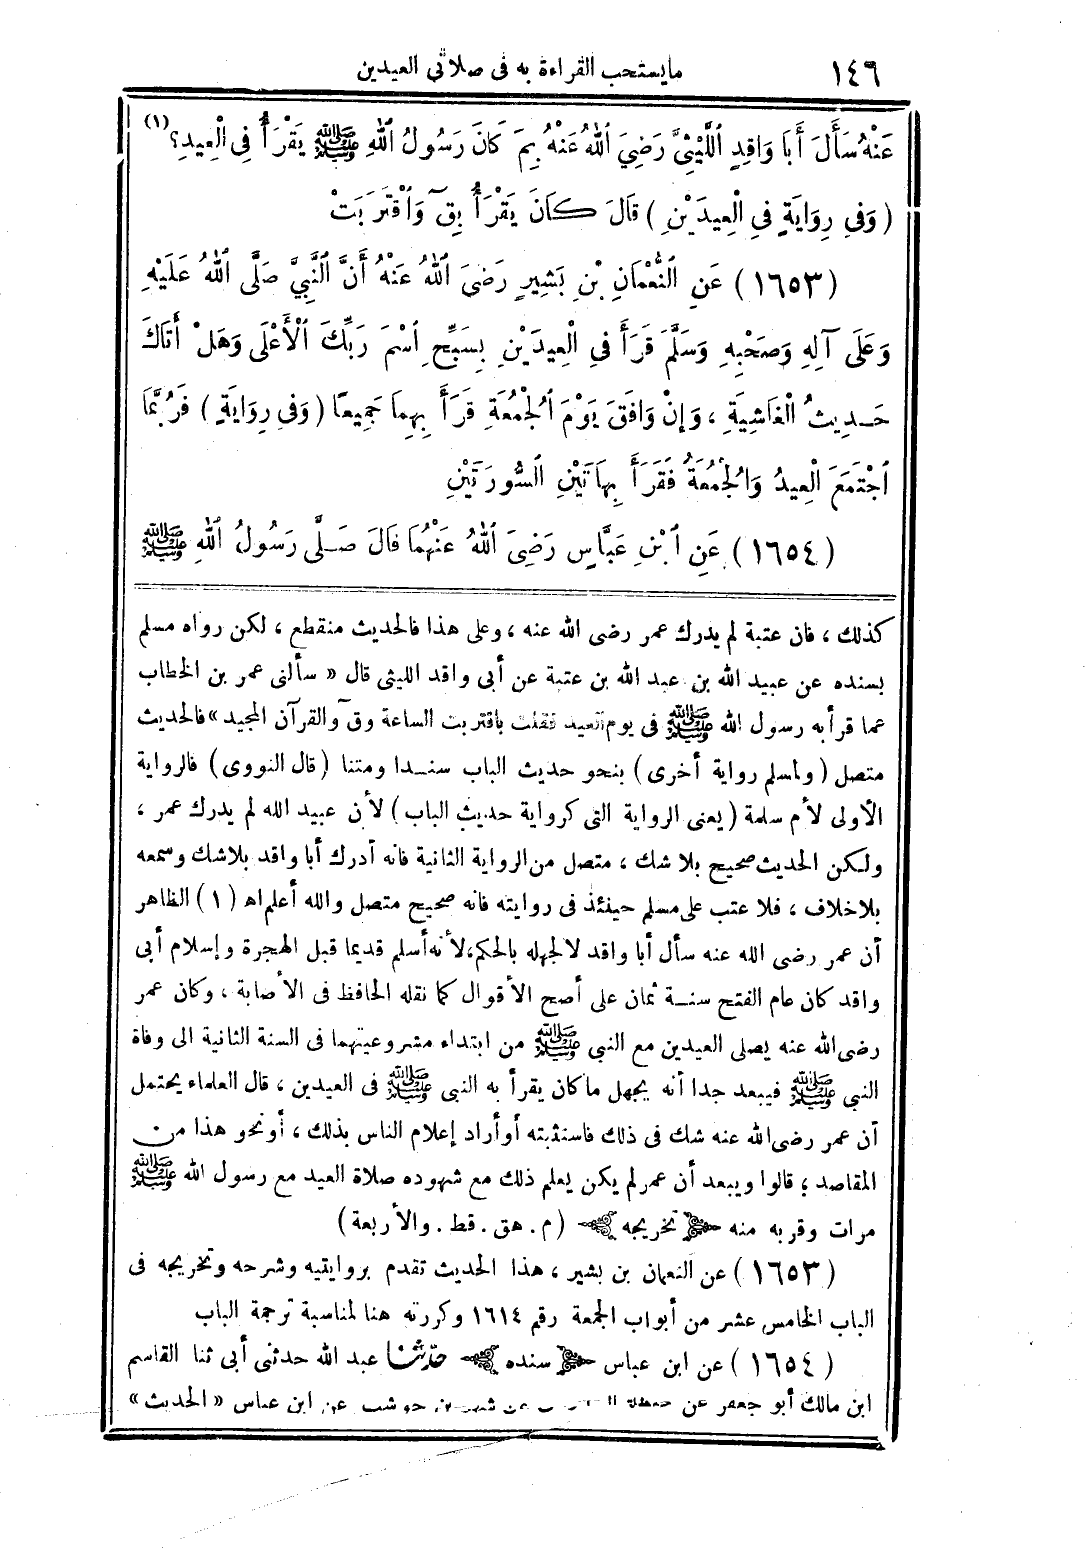 ١٤٦ مايستحب القراءة به فى صلاتي العيدين
عَنْهُ سَأَلَ أَبَا وَاقِدٍ اللَّيْثِيَّ رَضِيَ اللهُ عَنْهُ بِمَ كَانَ رَسُولُ اللهِ ﷺ يَقْرَأُ فِي الْعِيدِ؟ (١)
(وَفِي رِوَايَةٍ فِي الْعِيدَيْنِ) قَالَ كَانَ يَقْرَأُ بِقٓ وَاقْتَرَبَتْ
(١٦٥٣) عَنِ النُّعْمَانِ بْنِ بَشِيرٍ رَضِيَ اللهُ عَنْهُ أَنَّ النَّبِيَّ صَلَّى اللهُ عَلَيْهِ
وَعَلَى آلِهِ وَصَحْبِهِ وَسَلَّمَ قَرَأَ فِي الْعِيدَيْنِ بِسَبِّحِ اسْمَ رَبِّكَ الْأَعْلَى وَهَلْ أَتَاكَ
حَدِيثُ الْغَاشِيَةِ، وَإِنْ وَافَقَ يَوْمَ الْجُمُعَةِ قَرَأَ بِهِمَا جَمِيعًا (وَفِي رِوَايَةٍ) فَرُبَّمَا
اجْتَمَعَ الْعِيدُ وَالْجُمُعَةُ فَقَرَأَ بِهَاتَيْنِ السُّورَتَيْنِ
(١٦٥٤) عَنِ ابْنِ عَبَّاسٍ رَضِيَ اللهُ عَنْهُمَا قَالَ صَلَّى رَسُولُ اللهِ ﷺ
كذلك، فان عتبة لم يدرك عمر رضى الله عنه، وعلى هذا فالحديث منقطع، لكن رواه مسلم
بسنده عن عبيد الله بن عبد الله بن عتبة عن أبى واقد الليثى قال «سألنى عمر بن الخطاب
عما قرأ به رسول الله ﷺ فى يوم العيد فقلت باقتربت الساعة وقٓ والقرآن المجيد» فالحديث
متصل (ولمسلم رواية أخرى) بنحو حديث الباب سنـدا ومتنا (قال النووى) فالرواية
الأولى لأم سلمة (يعنى الرواية التى كرواية حديث الباب) لأن عبيد الله لم يدرك عمر،
ولـكن الحديث صحيح بلا شك، متصل من الرواية الثانية فانه أدرك أبا واقد بلاشك وسمعه
بلاخلاف، فلا عتب على مسلم حينئذ فى روايته فانه صحيح متصل والله أعلم اهـ (١) الظاهر
أن عمر رضى الله عنه سأل أبا واقد لا لجهله بالحكم، لأنه أسلم قديما قبل الهجرة وإسلام أبى
واقد كان عام الفتح سنـة ثمان على أصح الأقوال كما نقله الحافظ فى الأصابة، وكان عمر
رضى الله عنه يصلى العيدين مع النبى ﷺ من ابتداء مشروعيتهما فى السنة الثانية الى وفاة
النبى ﷺ فيبعد جدا أنه يجهل ماكان يقرأ به النبى ﷺ فى العيدين، قال العلماء يحتمل
أن عمر رضى الله عنه شك فى ذلك فاستثبته أوأراد إعلام الناس بذلك، أونحو هذا من
المقاصد؛ قالوا ويبعد أن عمر لم يكن يعلم ذلك مع شهوده صلاة العيد مع رسول الله ﷺ
مرات وقربه منه تخريجه (م. هق. قط. والأربعة)
(١٦٥٣) عن النعمان بن بشير، هذا الحديث تقدم بروايتيه وشرحه وتخريجه فى
الباب الخامس عشر من أبواب الجمعة رقم ١٦١٤ وكررته هنا لمناسبة ترجمة الباب
(١٦٥٤) عن ابن عباس سنده حدثنا عبد الله حدثنى أبى ثنا القاسم
ابن مالك أبو جعفر عن حنظلة عن شهر بن حوشب عن ابن عباس «الحديث»